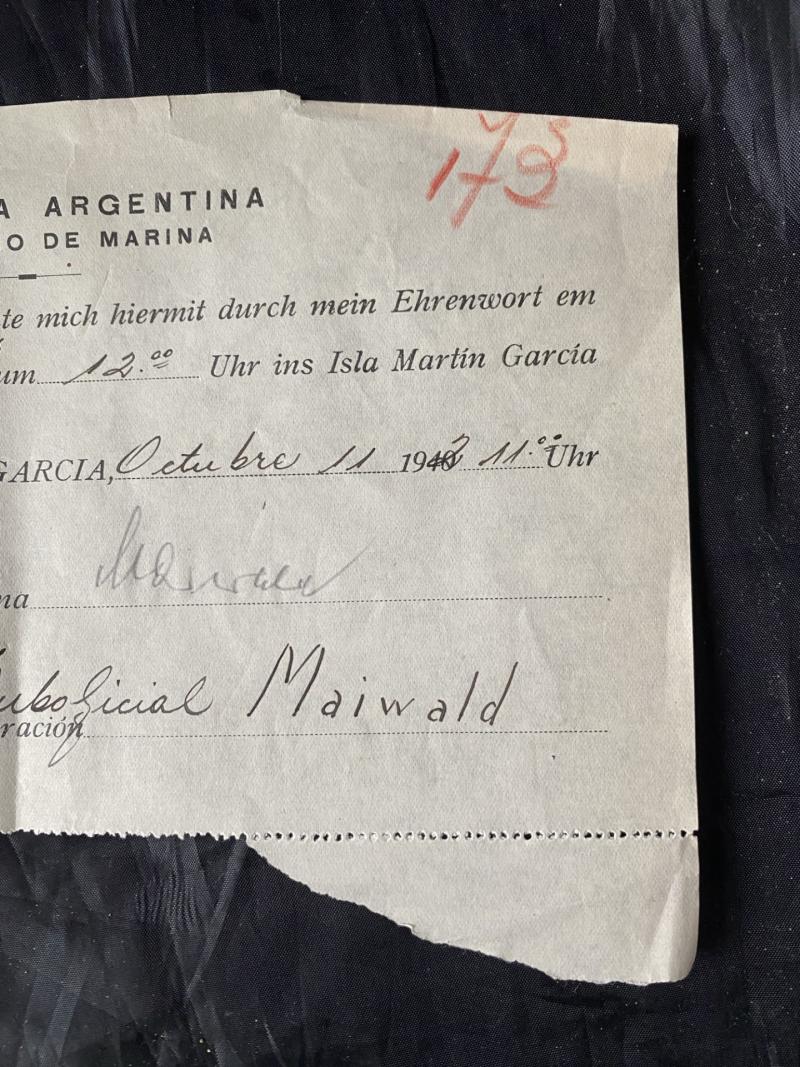 173
A ARGENTINA
O DE MARINA
te mich hiermit durch mein Ehrenwort em
um 12.00 Uhr ins Isla Martín García
GARCIA, Octubre 11 1942 11.00 Uhr
na Maiwald
uboficial Maiwald
ración